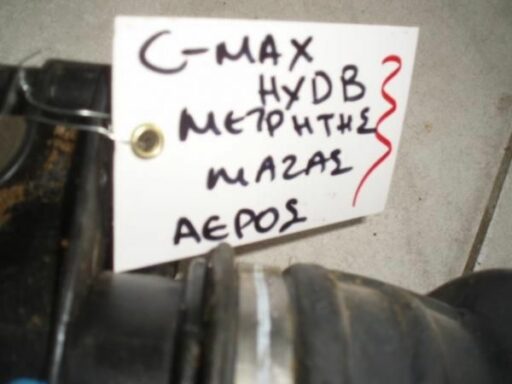 C-MAX
HXDB
ΜΕΤΡΗΤΗΣ
ΜΑΖΑΣ
ΑΕΡΟΣ